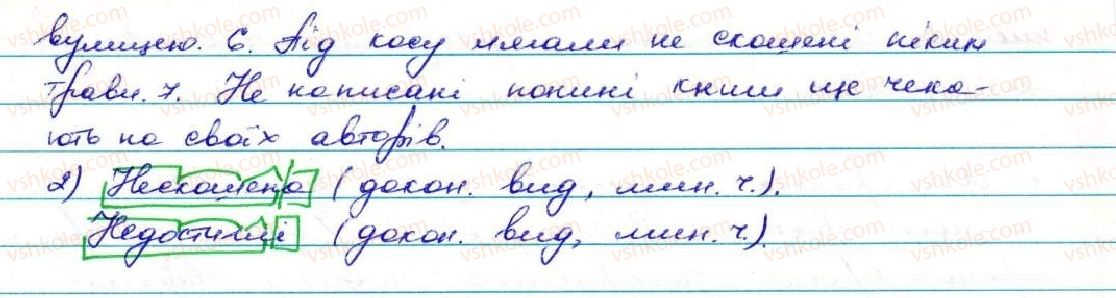 вулицею. 6. Під косу лягали не скошені ніким
трави. 7. Не написані понині книги ще чека-
ють на своїх авторів.
2) Нескошена (докон. вид, мин. ч.).
Недостиглі (докон. вид, мин. ч.).